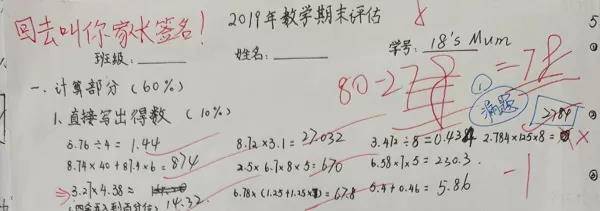 回去叫你家长签名!
2019年数学期末评估
班级: 姓名: 学号: 18's Mum
80-2 =78
一、计算部分 (60%)
漏题
1、直接写出得数 (10%)
2784
5.76÷4= 1.44 8.72×3.1= 27.032 3.472÷8=0.434 2.784×125×8= ×
8.74×40+87.4×6= 874 2.5×6.7×8×5= 670 6.58×7×5= 230.3
3.27×4.38≈ 6.78×(1.25+1.25×)= 67.8 5.4+0.46= 5.86 -1
14.32